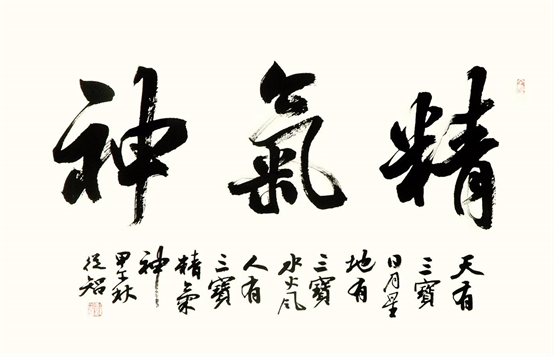 精氣神
天有
三寶
日月星
地有
三寶
水火风
人有
三寶
精氣
神
甲午秋